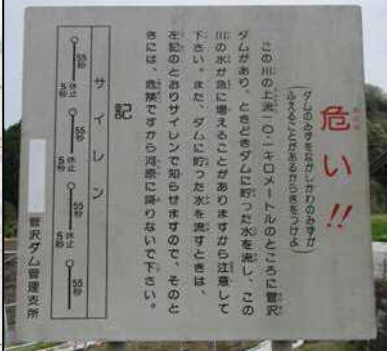 危い!!
(ダムのみずをながしかわのみずが
ふえることがあるからきをつけよ)
この川の上流一〇・一キロメートルのところに菅沢
ダムがあり、ときどきダムに貯った水を流し、この
川の水が急に増えることがありますから注意して
下さい。また、ダムに貯った水を流すときは、
左記のとおりサイレンで知らせますので、そのと
きには、危険ですから河原に降りないで下さい。
記
サイレン
55秒
休止5秒
55秒
休止5秒
55秒
休止5秒
55秒
菅沢ダム管理支所